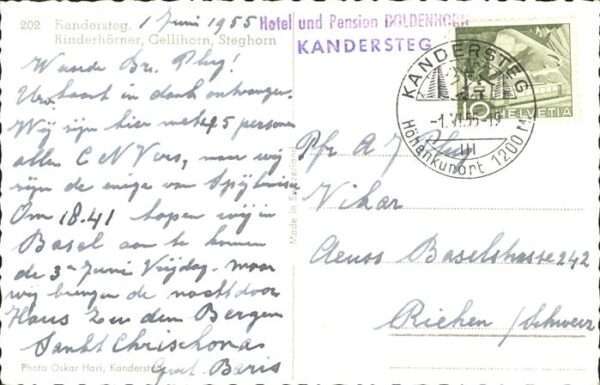 202 Kandersteg. 1 Juni 1955
Kinderhörner, Gellihorn, Steghorn
Hotel und Pension DOLDENHORN
KANDERSTEG
Waarde Br. Plug!
Uw kaart in dank ontvangen.
Wij zijn hier met 5 personen
allen C N Vers, maar wij
zijn de enige van
Om 18.41 hopen wij in
Basel aan te komen
de 3e Juni Vrijdag. maar
wij brengen de nacht door
Haus zu den Bergen
Sankt Chrischona
Baris
Photo Oskar Hari, Kandersteg
Made in Switzerland
KANDERSTEG
-1.VI.55-19
Höhenkurort 1200 M
10
HELVETIA
Pfr A J Plug
Vikar
Baselstrasse 242
Riehen /Schweiz